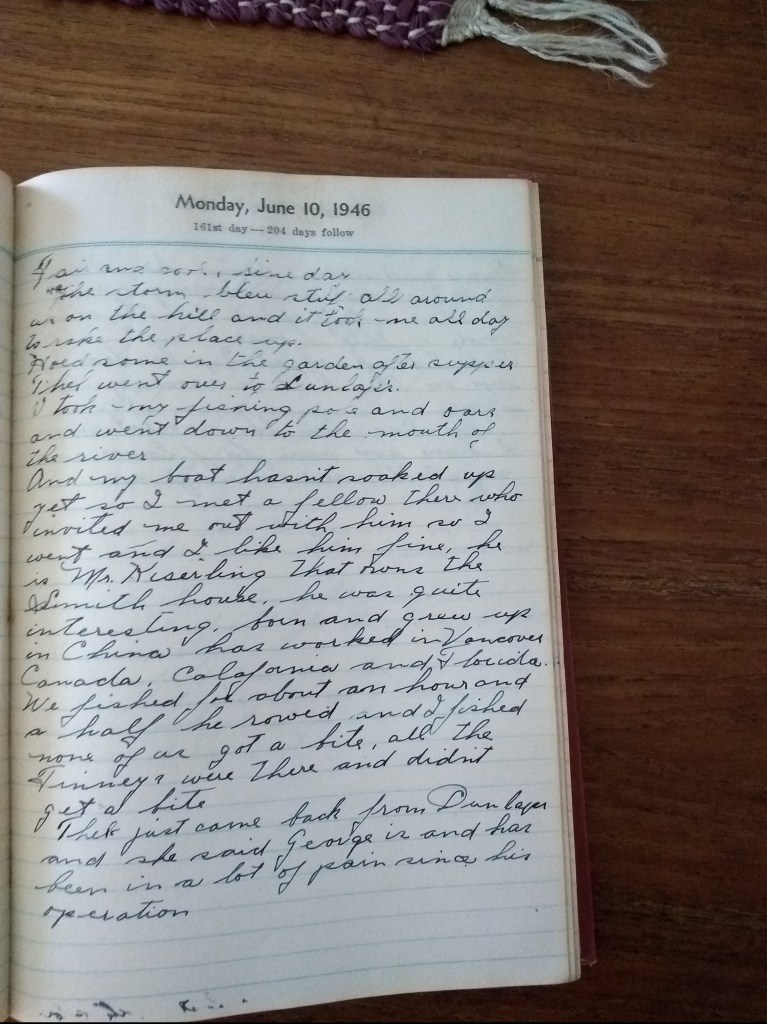 Monday, June 10, 1946
161st day — 204 days follow
Fair and cool, fine day
The storm blew stuf all around
us on the hill and it took me all day
to rake the place up.
Hoed some in the garden after supper
Thel went over to Dunlaps.
I took my fishing pole and oars
and went down to the mouth of
the river
And my boat hasn't soaked up
yet so I met a fellow there who
invited me out with him so I
went and I like him fine, he
is Mr. Kiserling that owns the
Smith house, he was quite
interesting, born and grew up
in China has worked in Vancover
Canada, Calafornia and Florida.
We fished for about an hour and
a half he rowed and I fished
none of us got a bite, all the
Finneys were there and didn't
get a bite
Thel just came back from Dunlaps
and she said George is and has
been in a lot of pain since his
operation